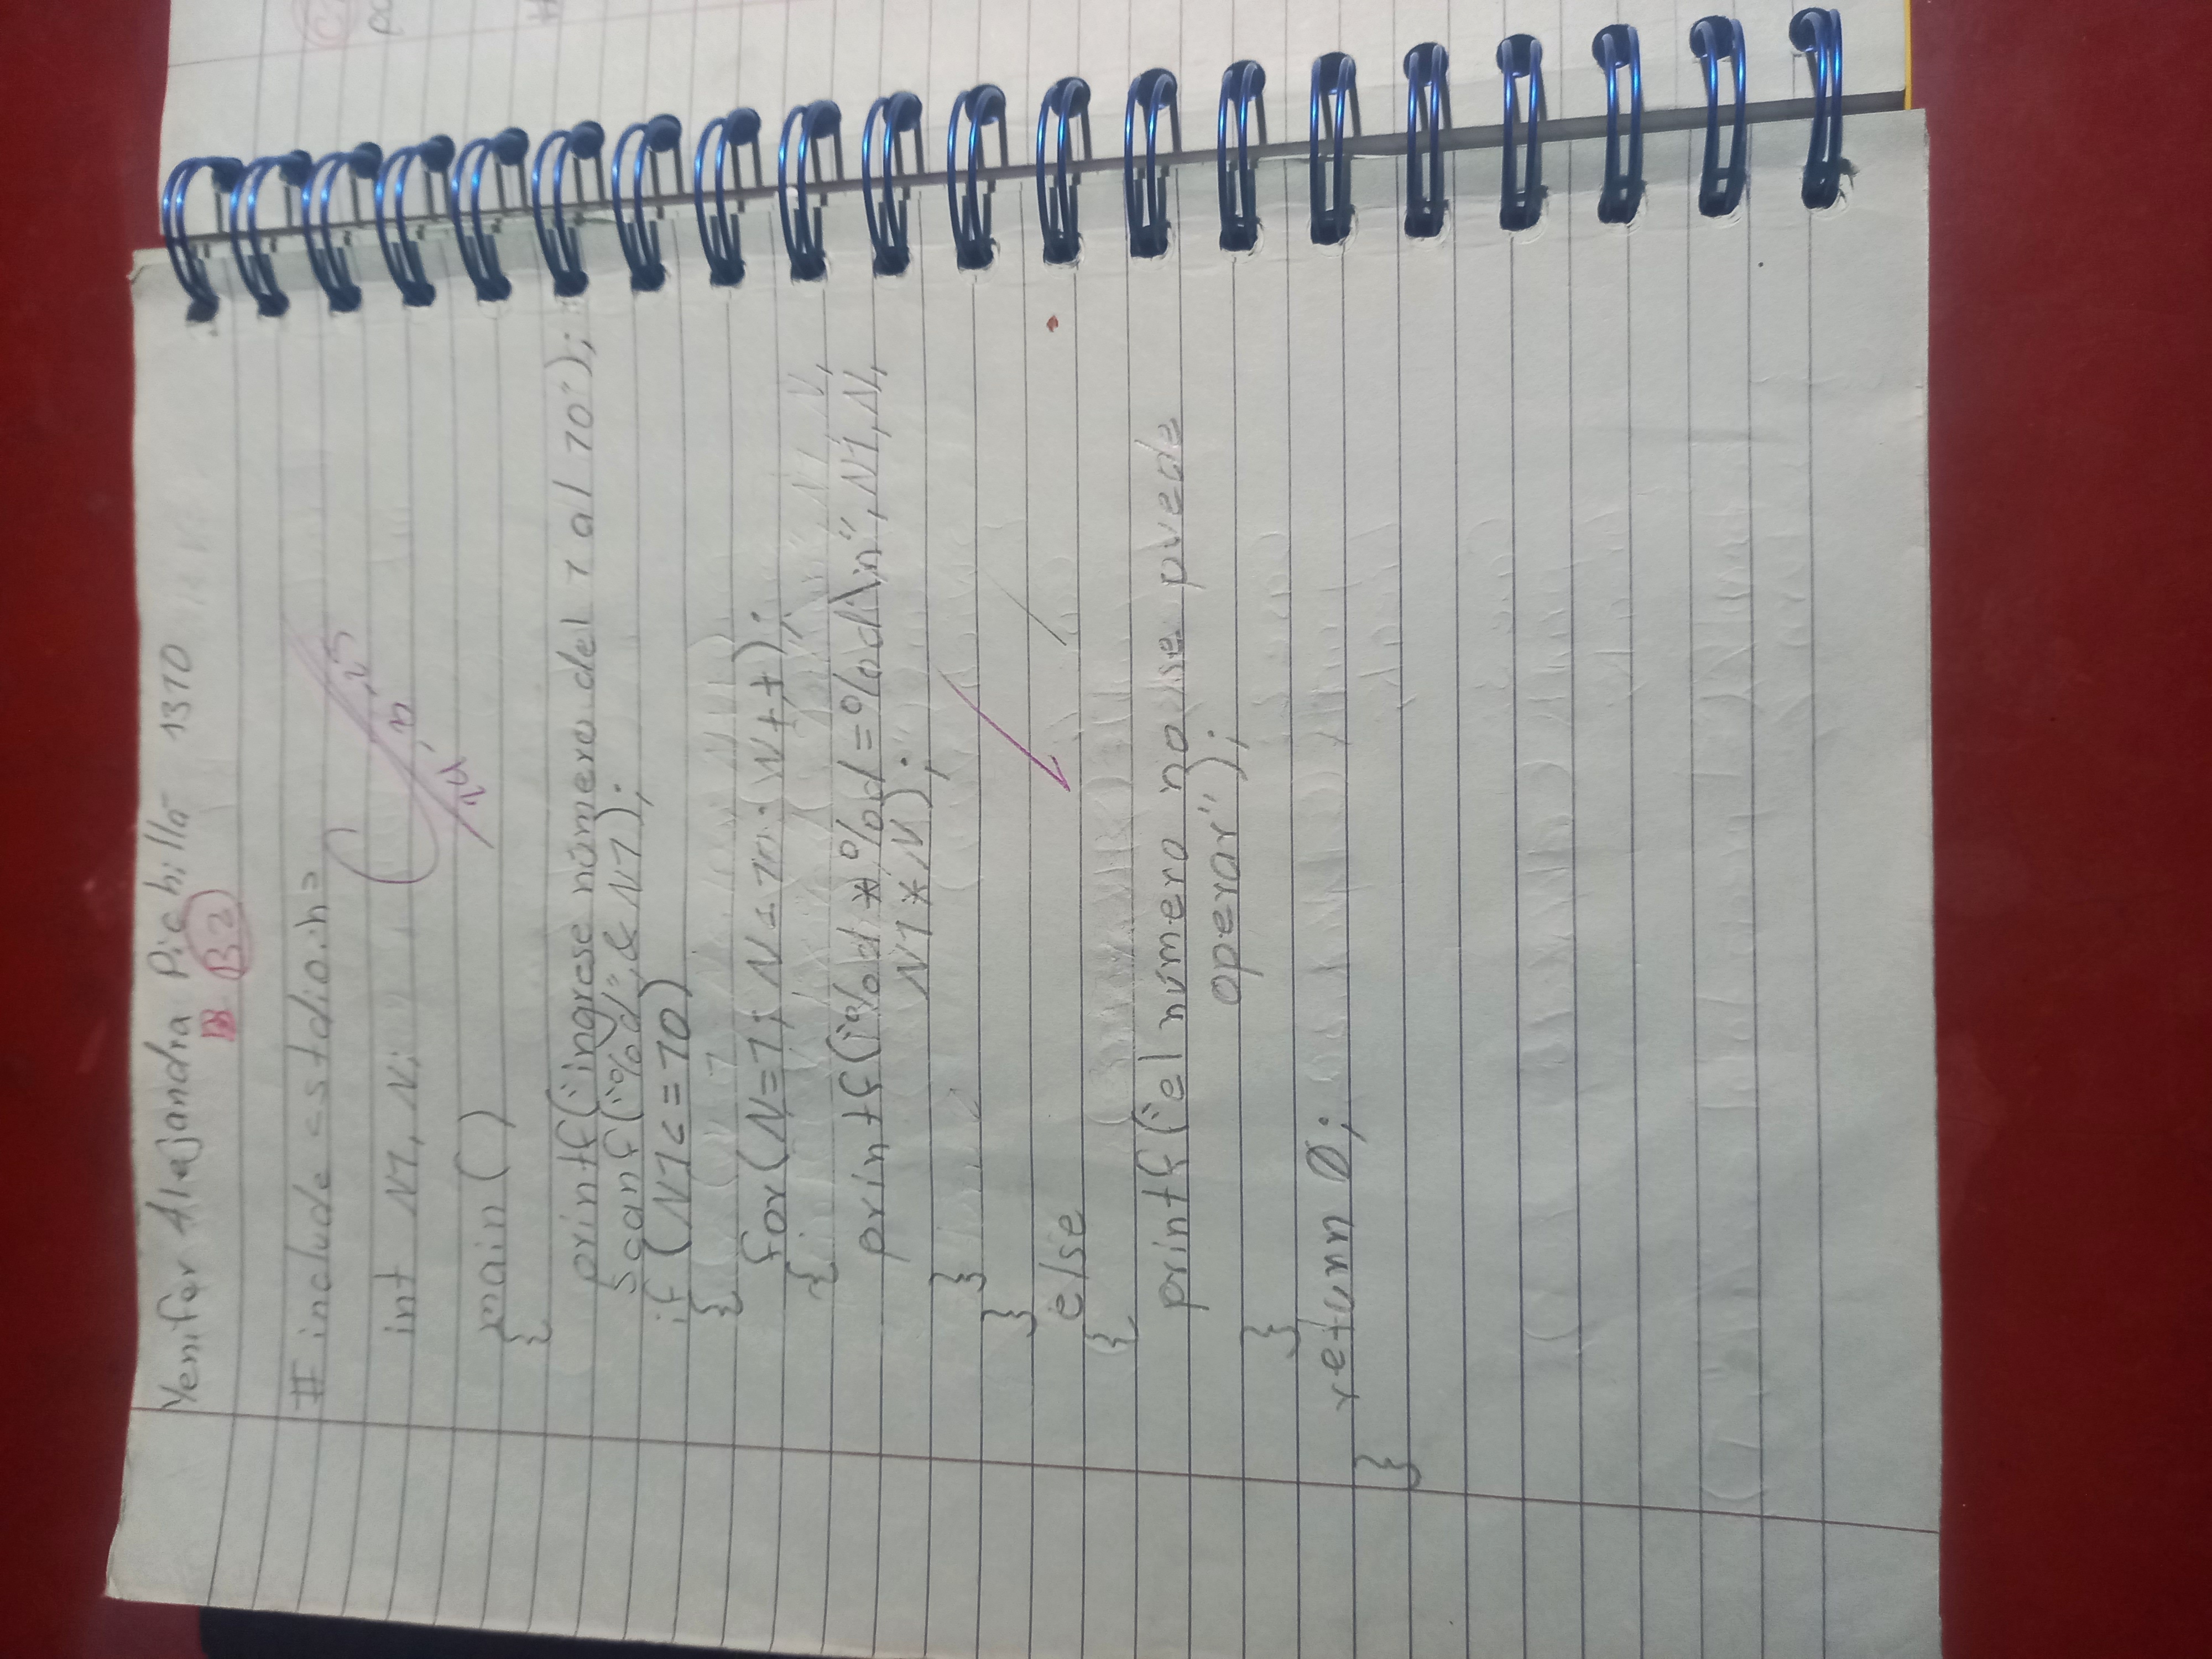 Yenifer Alejandra Pichillá 1310
B B2
# include <stdio.h>
int N1, N;
main ()
{
printf("ingrese número del 1 al 10");
scanf("%d", & N1);
if (N1 <= 10)
{
for (N=1; N<=10; N++);
{
printf("%d * %d = %d\n", N1, N,
N1 * N);
}
}
else
{
printf("el número no se puede
operar");
}
return 0;
}